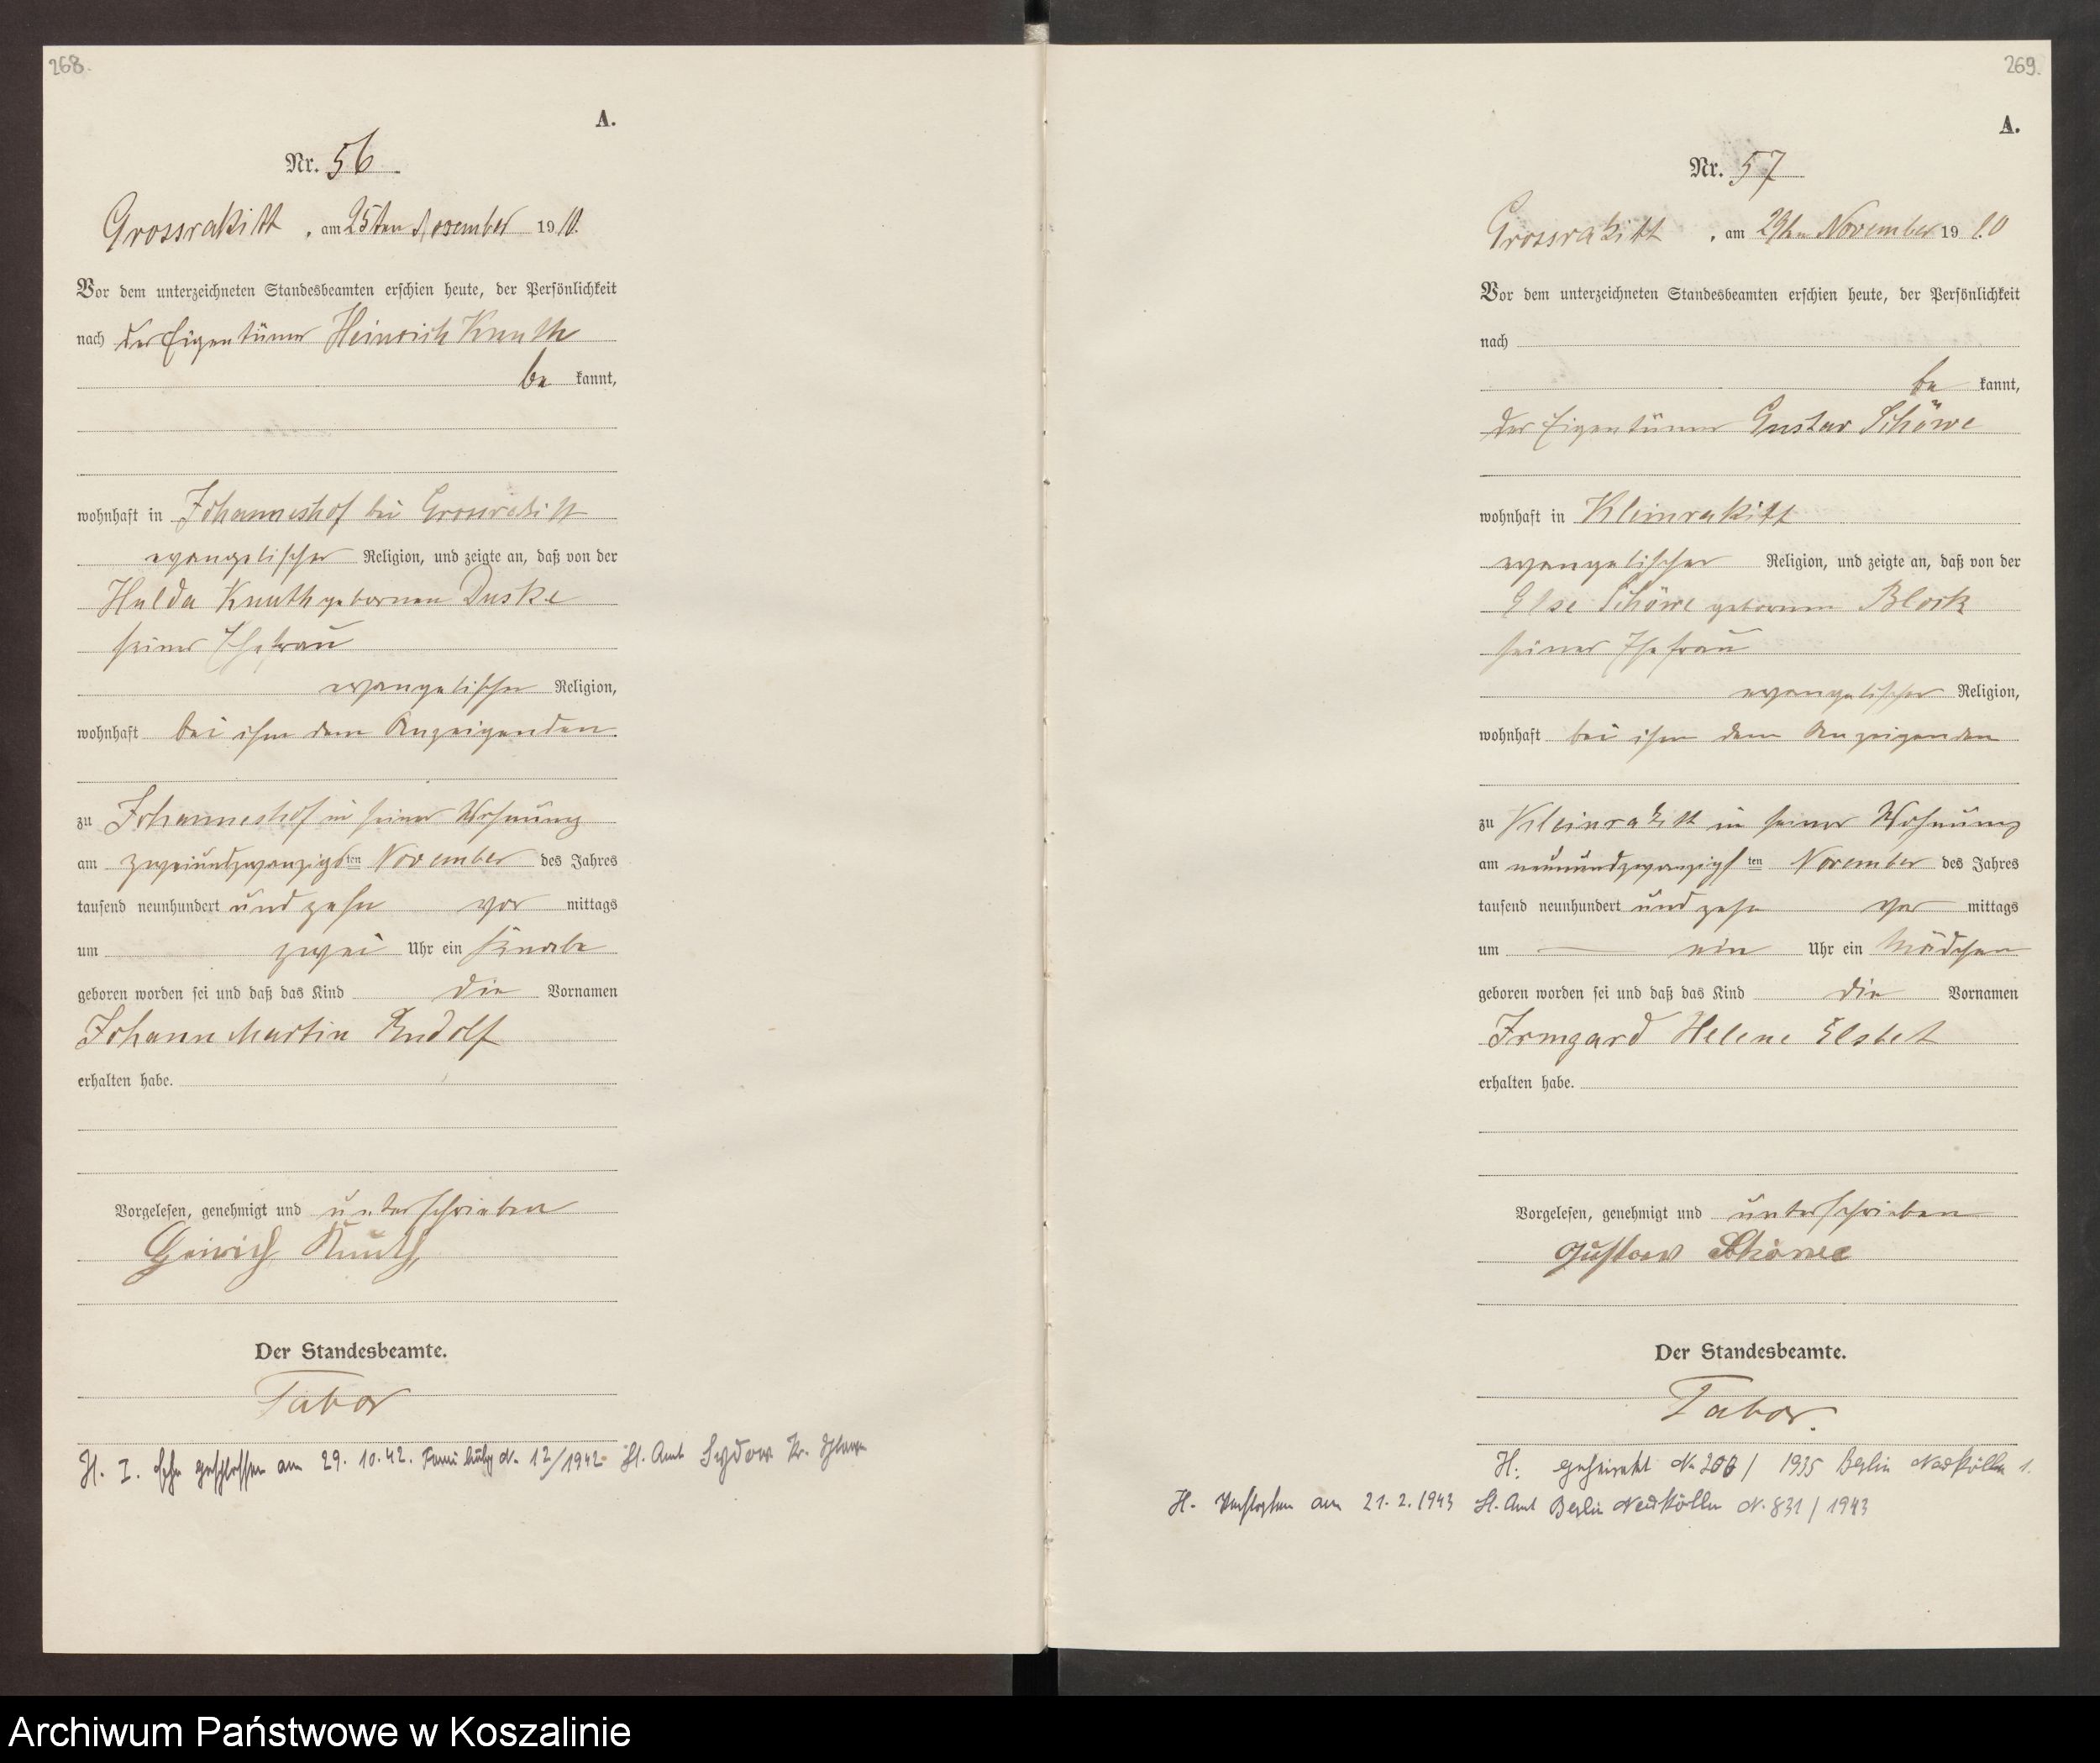 268.
A.
Nr. 56
Grossrakitt, am 25ten November 1910.
Vor dem unterzeichneten Standesbeamten erschien heute, der Persönlichkeit
nach der Eigentümer Heinrich Knuth
be kannt,
wohnhaft in Johanneshof bei Grossrakitt
evangelischer Religion, und zeigte an, daß von der
Hulda Knuth gebornen Duske
seiner Ehefrau
evangelischer Religion,
wohnhaft bei ihm dem Anzeigenden.
zu Johanneshof in seiner Wohnung
am zweiundzwanzigsten November des Jahres
tausend neunhundert und zehn vor mittags
um zwei Uhr ein Knabe
geboren worden sei und daß das Kind die Vornamen
Johann Martin Rudolf
erhalten habe.
Vorgelesen, genehmigt und unterschrieben
Heinrich Knuth
Der Standesbeamte.
Tabor
H. I. Ehe geschlossen am 29. 10. 42. N. 12/1942 St. Amt Sydow Kr. Schlawe
269.
A.
Nr. 57
Grossrakitt, am 29ten November 1910
Vor dem unterzeichneten Standesbeamten erschien heute, der Persönlichkeit
nach
be kannt,
der Eigentümer Gustav Schöwe
wohnhaft in Kleinrakitt
evangelischer Religion, und zeigte an, daß von der
Else Schöwe gebornen Block
seiner Ehefrau
evangelischer Religion,
wohnhaft bei ihm dem Anzeigenden
zu Kleinrakitt in seiner Wohnung
am neunundzwanzigsten November des Jahres
tausend neunhundert und zehn vor mittags
um — ein Uhr ein Mädchen
geboren worden sei und daß das Kind die Vornamen
Irmgard Helene Elsbet
erhalten habe.
Vorgelesen, genehmigt und unterschrieben
Gustav Schöwe
Der Standesbeamte.
Tabor.
H. geheiratet N. 206 / 1935 Berlin Neukölln 1.
H. Verstorben am 21. 2. 1943 St. Amt Berlin Neukölln N. 831 / 1943
Archiwum Państwowe w Koszalinie